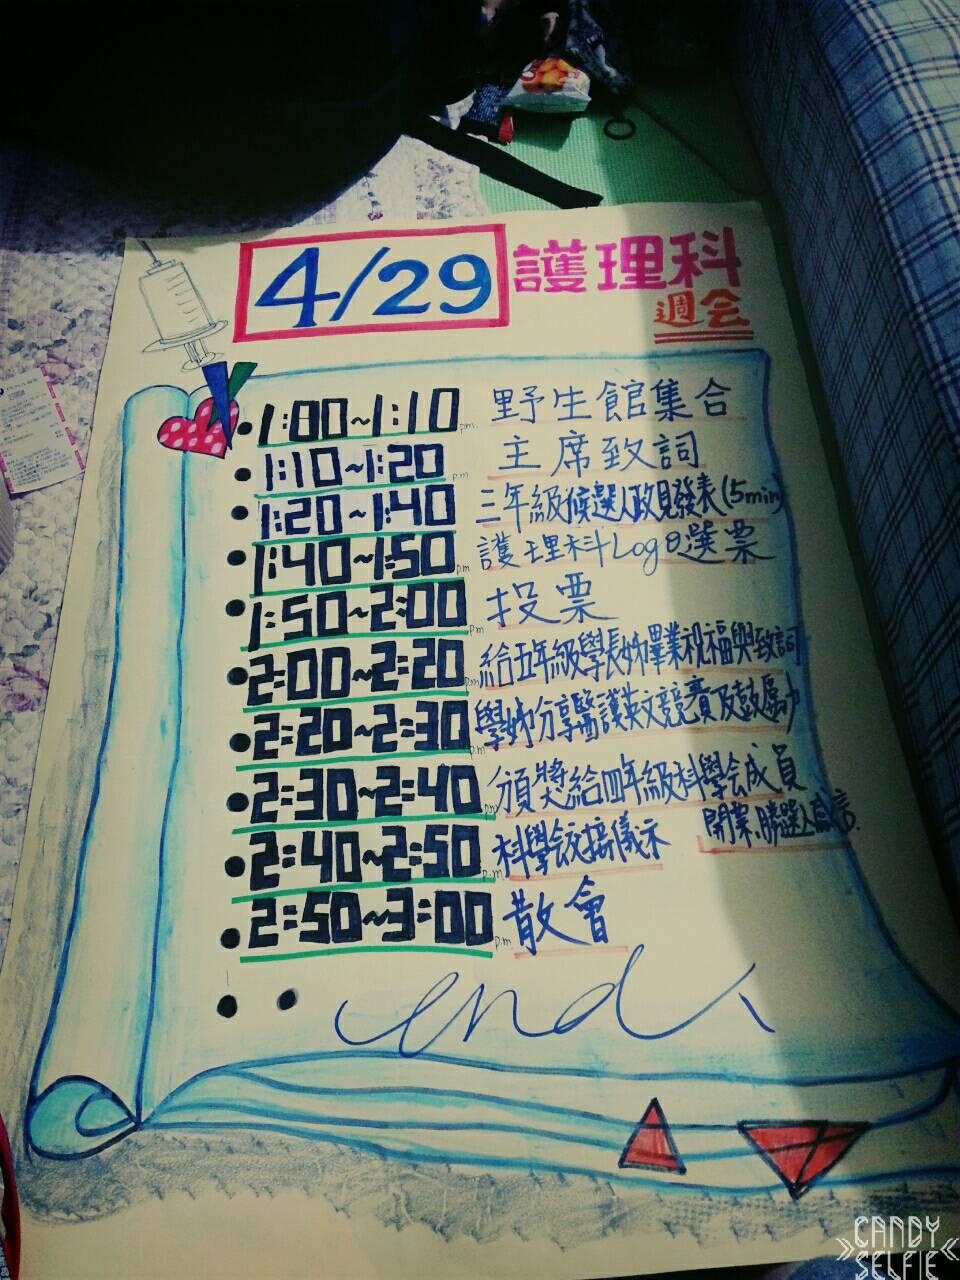 4/29 護理科
週会
1:00~1:10 pm 野生館集合
1:10~1:20 p.m 主席致詞
1:20~1:40 三年級候選人政見發表(5min)
1:40~1:50 pm 護理科Logo選票
1:50~2:00 pm 投票
2:00~2:20 p.m 給五年級學長姊畢業祝福與致詞
2:20~2:30 p.m 學姊分享醫護英文競賽及鼓勵
2:30~2:40 pm 頒獎給四年級科學会成員
開票、勝選人感言.
2:40~2:50 p.m 科學会交接儀示
2:50~3:00 p.m 散會
end
CANDY
SELFIE